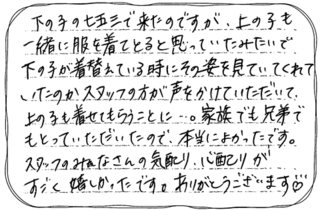 下の子の七五三で来たのですが、上の子も
一緒に服を着てとると思っていたみたいで
下の子が着替えている時にその姿を見ていてくれて
いたのかスタッフの方が声をかけていただいて、
上の子も着せてもらうことに…。家族でも兄弟で
もとっていただいたので、本当によかったです。
スタッフのみなさんの気配り、心配りが
すごく嬉しかったです。ありがとうございます